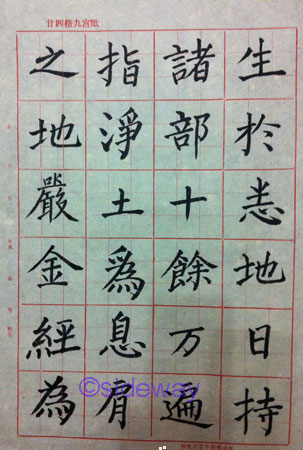 廿四格九宮紙
生於悉地日持
諸部十餘万遍
指淨土爲息肩
之地嚴金經為
©sideway